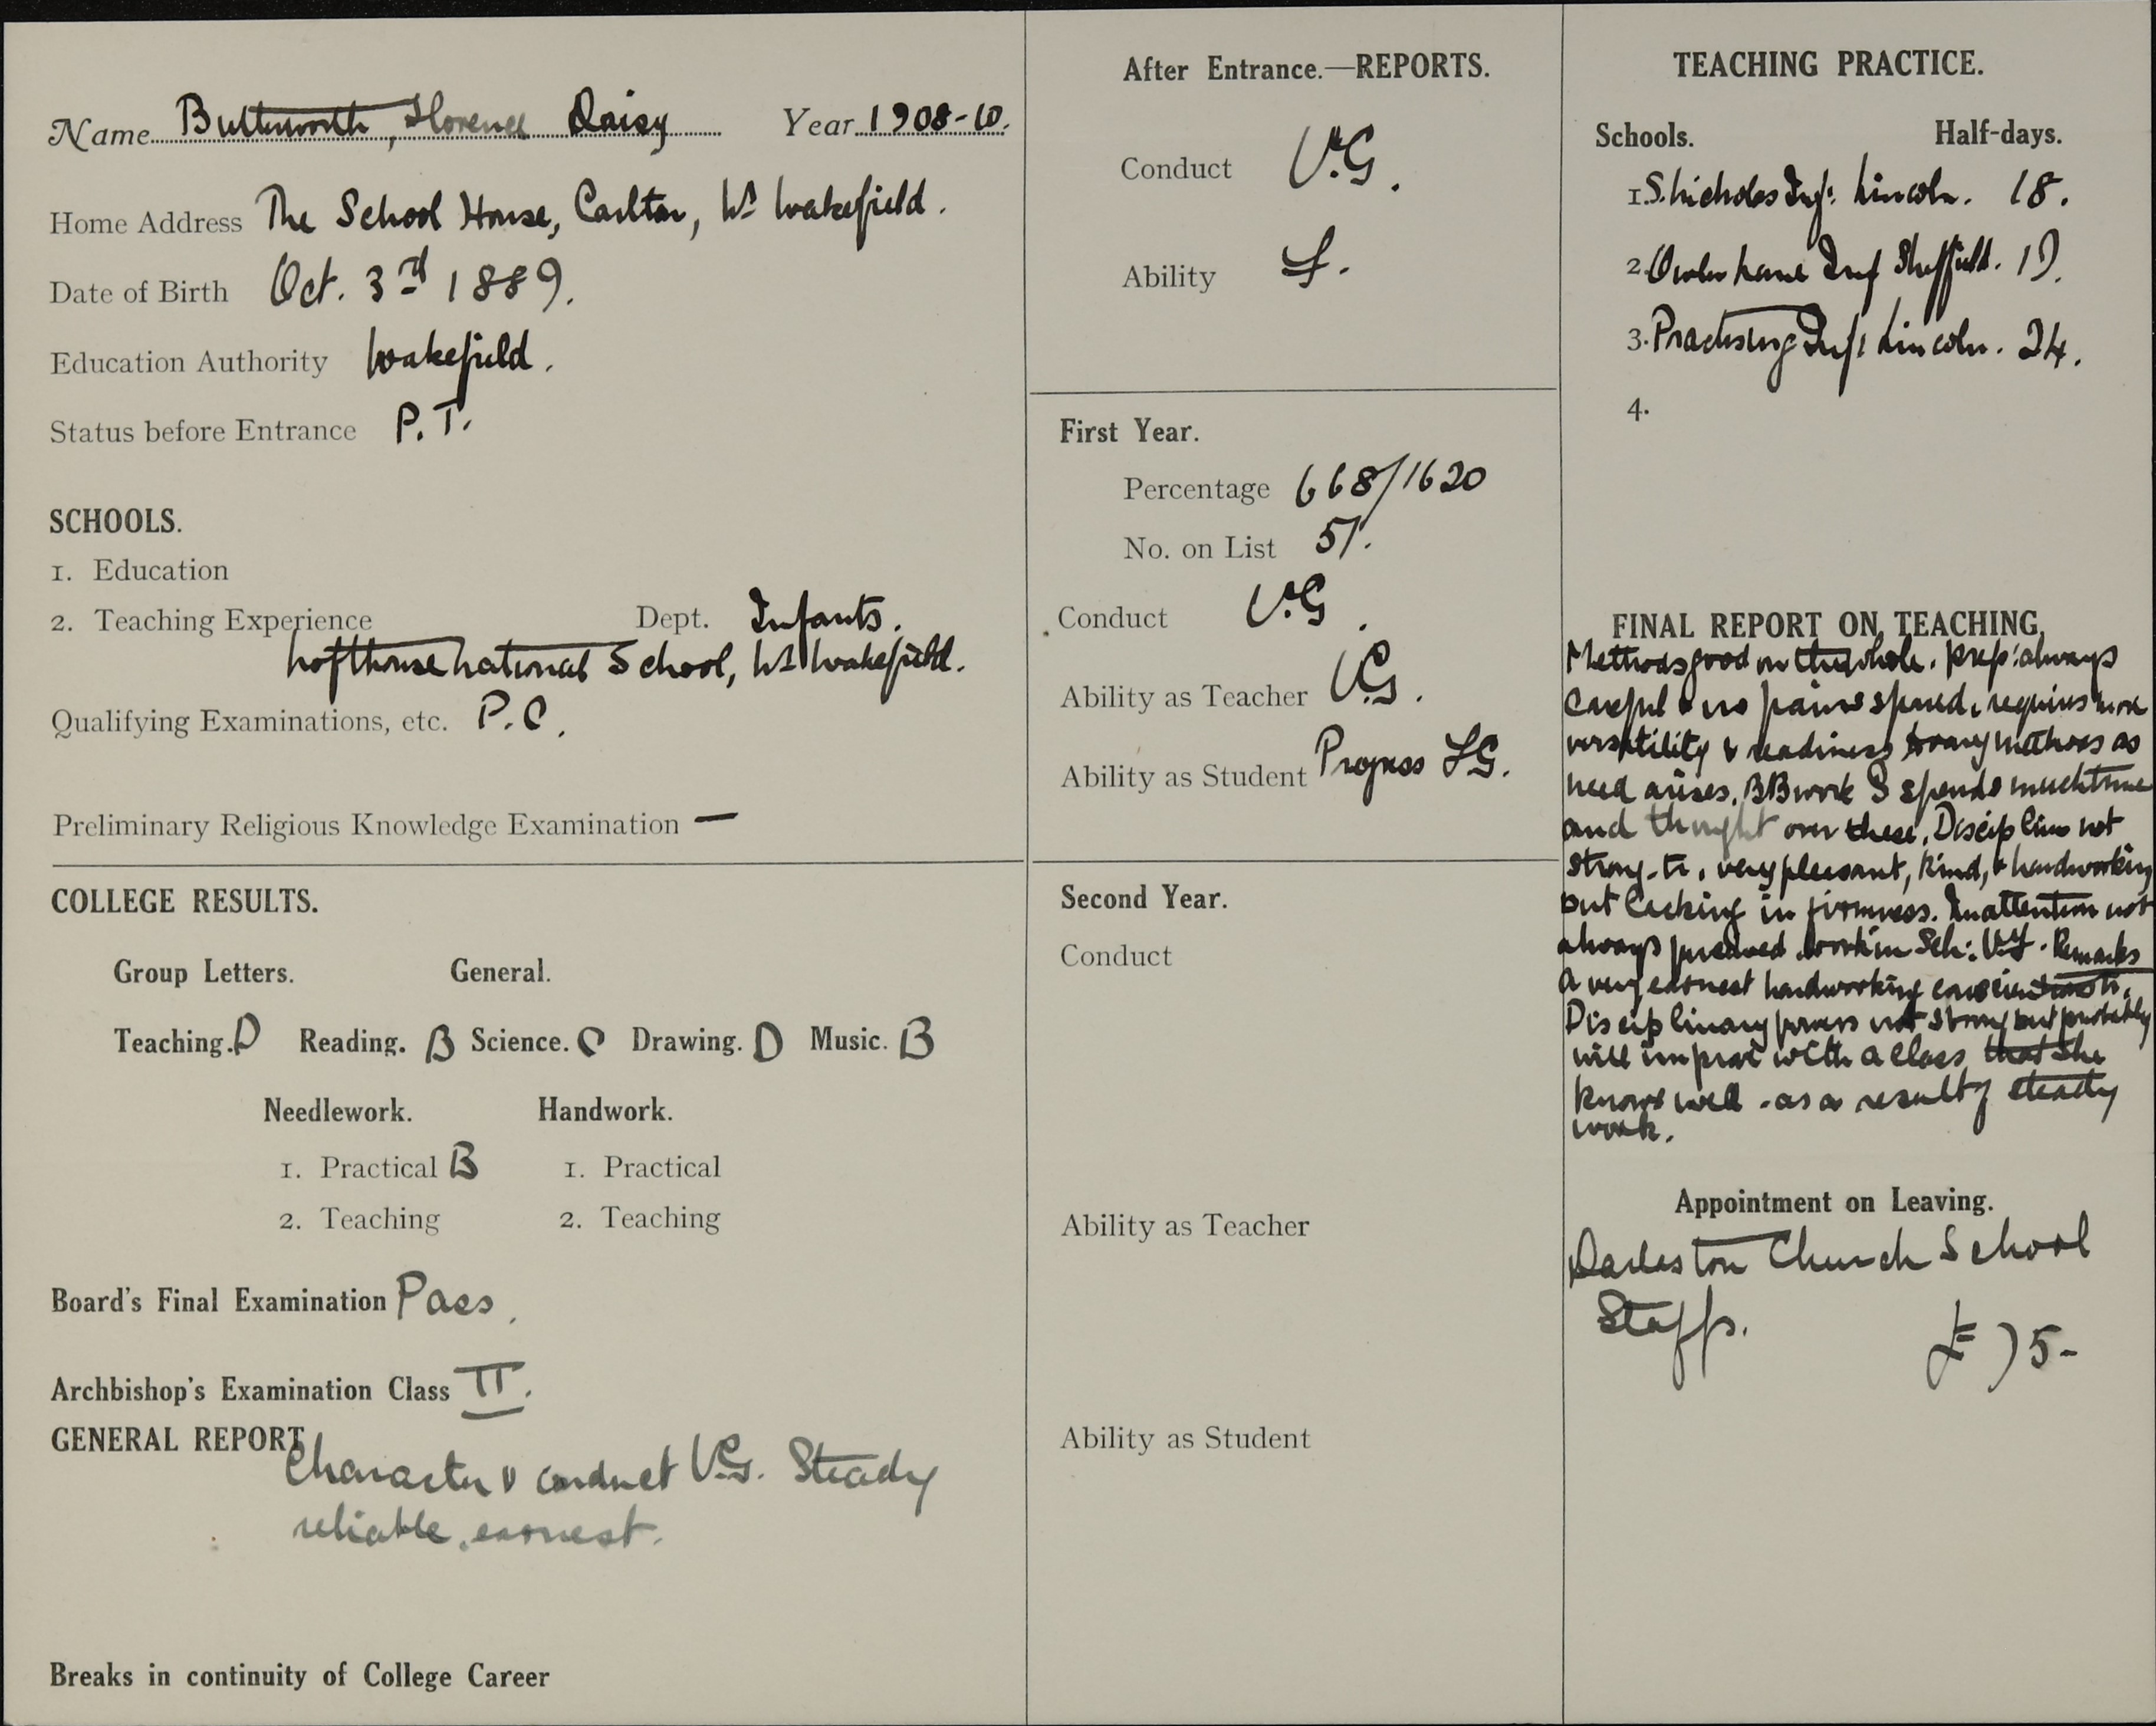 Name Butterworth, Florence Daisy Year 1908-10.
Home Address The School House, Carlton, Nr Wakefield.
Date of Birth Oct. 3rd 1889.
Education Authority Wakefield.
Status before Entrance P.T.
SCHOOLS.
1. Education
2. Teaching Experience Dept. Infants.
Lofthouse National School, Nr Wakefield.
Qualifying Examinations, etc. P.C.
Preliminary Religious Knowledge Examination —
COLLEGE RESULTS.
Group Letters. General.
Teaching. D Reading. B Science. C Drawing. D Music. B
Needlework. Handwork.
1. Practical B 1. Practical
2. Teaching 2. Teaching
Board's Final Examination Pass.
Archbishop's Examination Class II.
GENERAL REPORT
Character & conduct V.G. Steady
reliable, earnest.
Breaks in continuity of College Career
After Entrance.—REPORTS.
Conduct V.G.
Ability F.
First Year.
Percentage 668/1620
No. on List 51.
Conduct V.G.
Ability as Teacher V.G.
Ability as Student Progress FG.
Second Year.
Conduct
Ability as Teacher
Ability as Student
TEACHING PRACTICE.
Schools. Half-days.
1. S. Nicholas Inf: Lincoln. 18.
2. Owler Lane Inf Sheffield. 17.
3. Practising Inf: Lincoln. 24.
4.
FINAL REPORT ON TEACHING.
Methods good on the whole. prep: always
careful & no pains spared, requires more
versatility & readiness to vary methods as
need arises. BB work S spends much time
and thought over these. Discipline not
strong. tr. very pleasant, kind, & hardworking
but lacking in firmness. Inattention not
always work in Sch: V.F. Remarks
A very earnest hardworking
Disciplinary powers not strong but probably
will improve with a class that she
knows well - as a result of steady
work.
Appointment on Leaving.
Darlaston Church School
Staffs.
£75-